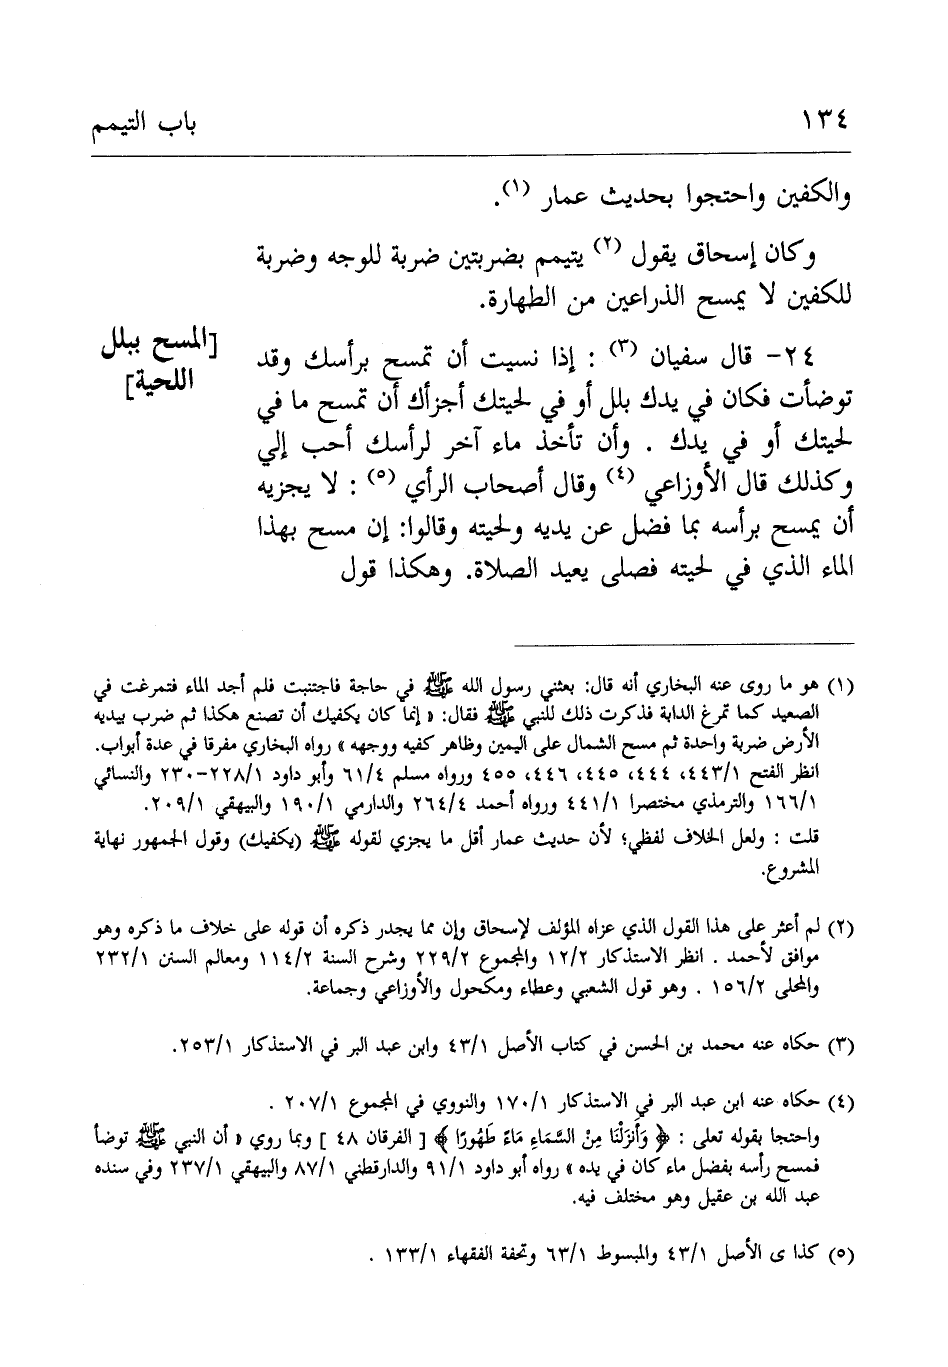 ١٣٤ باب التيمم
والكفين واحتجوا بحديث عمار (١).
وكان إسحاق يقول (٢) يتيمم بضربتين ضربة للوجه وضربة
للكفين لا يمسح الذراعين من الطهارة.
[المسح ببلل
اللحية]
٢٤- قال سفيان (٣) : إذا نسيت أن تمسح برأسك وقد
توضأت فكان في يدك بلل أو في لحيتك أجزأك أن تمسح ما في
لحيتك أو في يدك . وأن تأخذ ماء آخر لرأسك أحب إلي
وكذلك قال الأوزاعي (٤) وقال أصحاب الرأي (٥) : لا يجزيه
أن يمسح برأسه بما فضل عن يديه ولحيته وقالوا: إن مسح بهذا
الماء الذي في لحيته فصلى يعيد الصلاة. وهكذا قول
(١) هو ما روى عنه البخاري أنه قال: بعثني رسول الله ﷺ في حاجة فاجتنبت فلم أجد الماء فتمرغت في
الصعيد كما تمرغ الدابة فذكرت ذلك للنبي ﷺ فقال: « إنما كان يكفيك أن تصنع هكذا ثم ضرب بيديه
الأرض ضربة واحدة ثم مسح الشمال على اليمين وظاهر كفيه ووجهه » رواه البخاري مفرقا في عدة أبواب.
انظر الفتح ٤٤٣/١، ٤٤٤، ٤٤٥، ٤٤٦، ٤٥٥ ورواه مسلم ٦١/٤ وأبو داود ٢٢٨/١-٢٣٠ والنسائي
١٦٦/١ والترمذي مختصرا ٤٤١/١ ورواه أحمد ٢٦٤/٤ والدارمي ١٩٠/١ والبيهقي ٢٠٩/١.
قلت : ولعل الخلاف لفظي؛ لأن حديث عمار أقل ما يجزي لقوله ﷺ (يكفيك) وقول الجمهور نهاية
المشروع.
(٢) لم أعثر على هذا القول الذي عزاه المؤلف لإسحاق وإن مما يجدر ذكره أن قوله على خلاف ما ذكره وهو
موافق لأحمد . انظر الاستذكار ١٢/٢ والمجموع ٢٢٩/٢ وشرح السنة ١١٤/٢ ومعالم السنن ٢٣٢/١
والمحلى ١٥٦/٢ . وهو قول الشعبي وعطاء ومكحول والأوزاعي وجماعة.
(٣) حكاه عنه محمد بن الحسن في كتاب الأصل ٤٣/١ وابن عبد البر في الاستذكار ٢٥٣/١.
(٤) حكاه عنه ابن عبد البر في الاستذكار ١٧٠/١ والنووي في المجموع ٢٠٧/١ .
واحتجا بقوله تعلى : ﴿ وَأَنزَلْنَا مِنَ السَّمَاءِ مَاءً طَهُورًا ﴾ [ الفرقان ٤٨ ] وبما روي « أن النبي ﷺ توضأ
فمسح رأسه بفضل ماء كان في يده » رواه أبو داود ٩١/١ والدارقطني ٨٧/١ والبيهقي ٢٣٧/١ وفي سنده
عبد الله بن عقيل وهو مختلف فيه.
(٥) كذا ى الأصل ٤٣/١ والمبسوط ٦٣/١ وتحفة الفقهاء ١٣٣/١ .